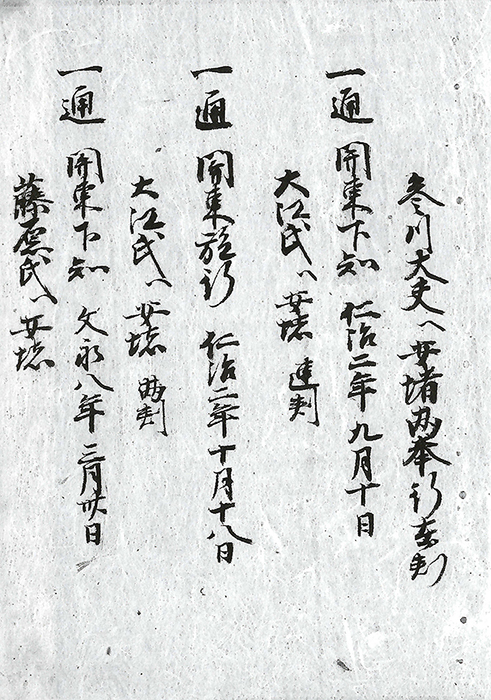 参川大夫へ安堵両奉行在判
一通 関東下知 仁治二年九月十日
大江氏へ安堵 連判
一通 関東施行 仁治二年十月十八日
大江氏へ安堵 両判
一通 関東下知 文永八年三月卅日
藤原氏へ安堵